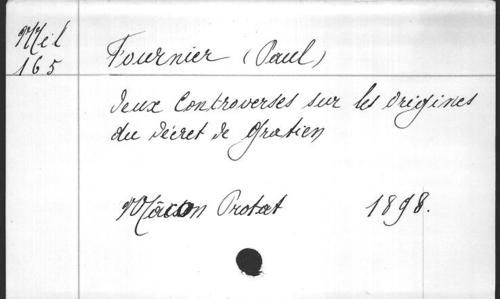 Mél
165
Fournier (Paul)
Deux Controverses sur les Origines
du Décret de Gratien
Mâcon Protat 1898.